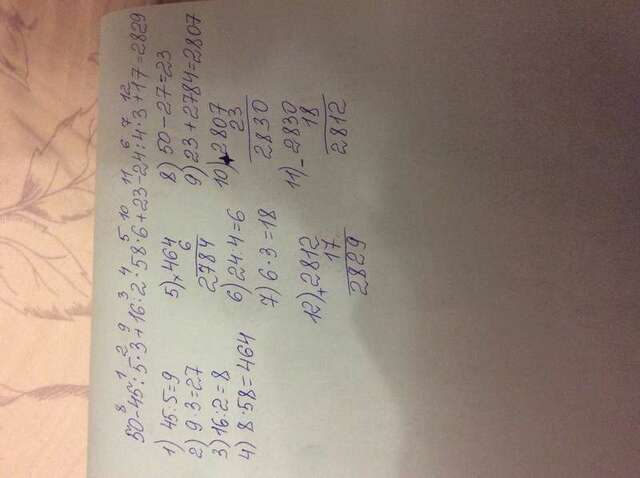 8 1 2 9 3 4 5 10 11 6 7 12
50-45:5·3+16:2·58·6+23-24:4·3+17=2829
1) 45:5=9
2) 9·3=27
3) 16:2=8
4) 8·58=464
5) × 464
6
2784
6) 24.4=6
7) 6·3=18
8) 50-27=23
9) 23+2784=2807
10) + 2807
23
2830
11) - 2830
18
2812
12) + 2812
17
2829